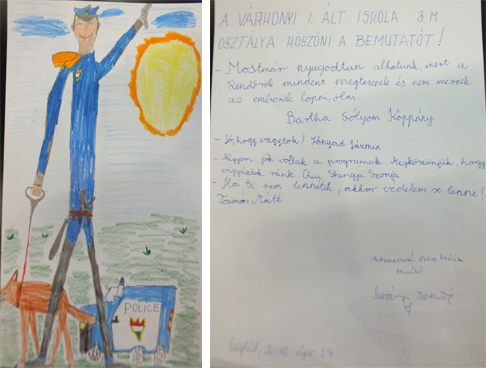 POLICE
A VÁRKONYI I. ÁLT. ISKOLA 3.M.
OSZTÁLYA KÖSZÖNI A BEMUTATÓT!
- Mostmár nyugodtan alhatunk, mert a
Rendőrök mindent megtesznek és nem mernek
az emberek lopni, ölni.
Bartha Sólyom Koppány
- Jó, hogy vagytok! Fónyad Jázmin
- Nagyon jók voltak a programok. Megköszönjük, hogy
vigyáztok ránk. Qiu Shengji Szonja
- Ha ti nem lennétek, akkor védelem se lenne!
Máté
Cegléd, ápr. 27